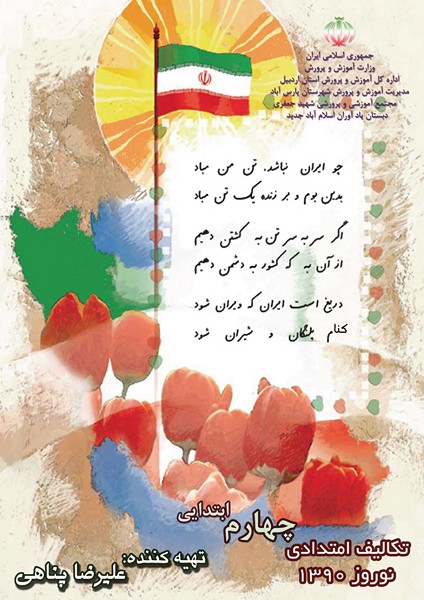 جمهوری اسلامی ایران
وزارت آموزش و پرورش
اداره کل آموزش و پرورش استان اردبیل
مدیریت آموزش و پرورش شهرستان پارس آباد
مجتمع آموزشی و پرورشی شهید جعفری
دبستان یاد آوران اسلام آباد جدید
چو ایران نباشد، تن من مباد
بدین بوم و بر زنده یک تن مباد
اگر سر به سر تن به کشتن دهیم
از آن به که کشور به دشمن دهیم
دریغ است ایران که ویران شود
کنام پلنگان و شیران شود
تکالیف امتدادی
نوروز ۱۳۹۰
چهارم ابتدایی
تهیه کننده:
علیرضا پناهی